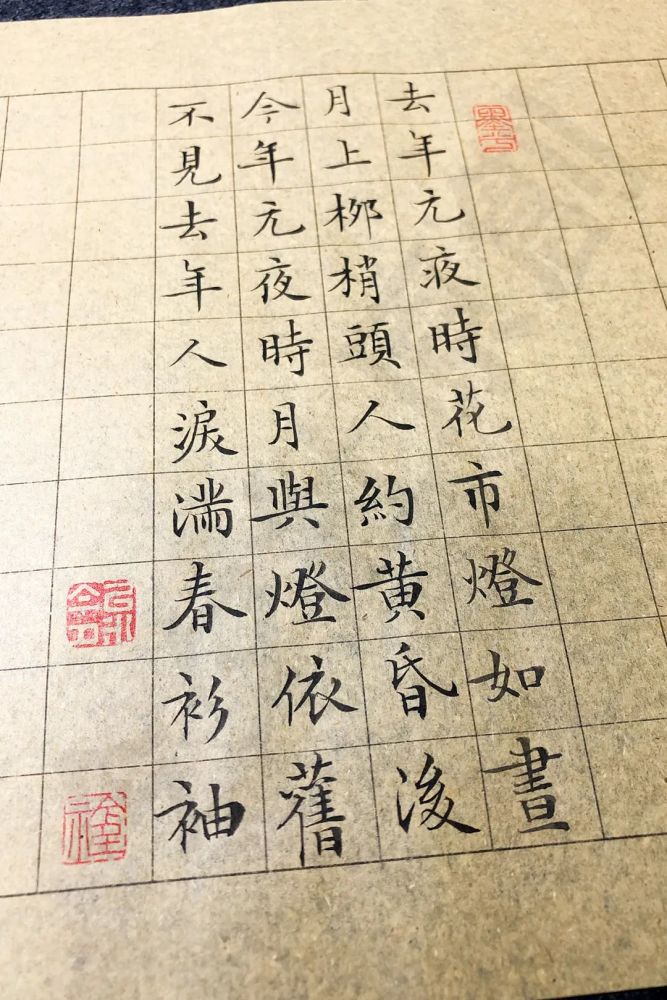 去年元夜時花市燈如晝
月上柳梢頭人約黃昏後
今年元夜時月與燈依舊
不見去年人淚滿春衫袖